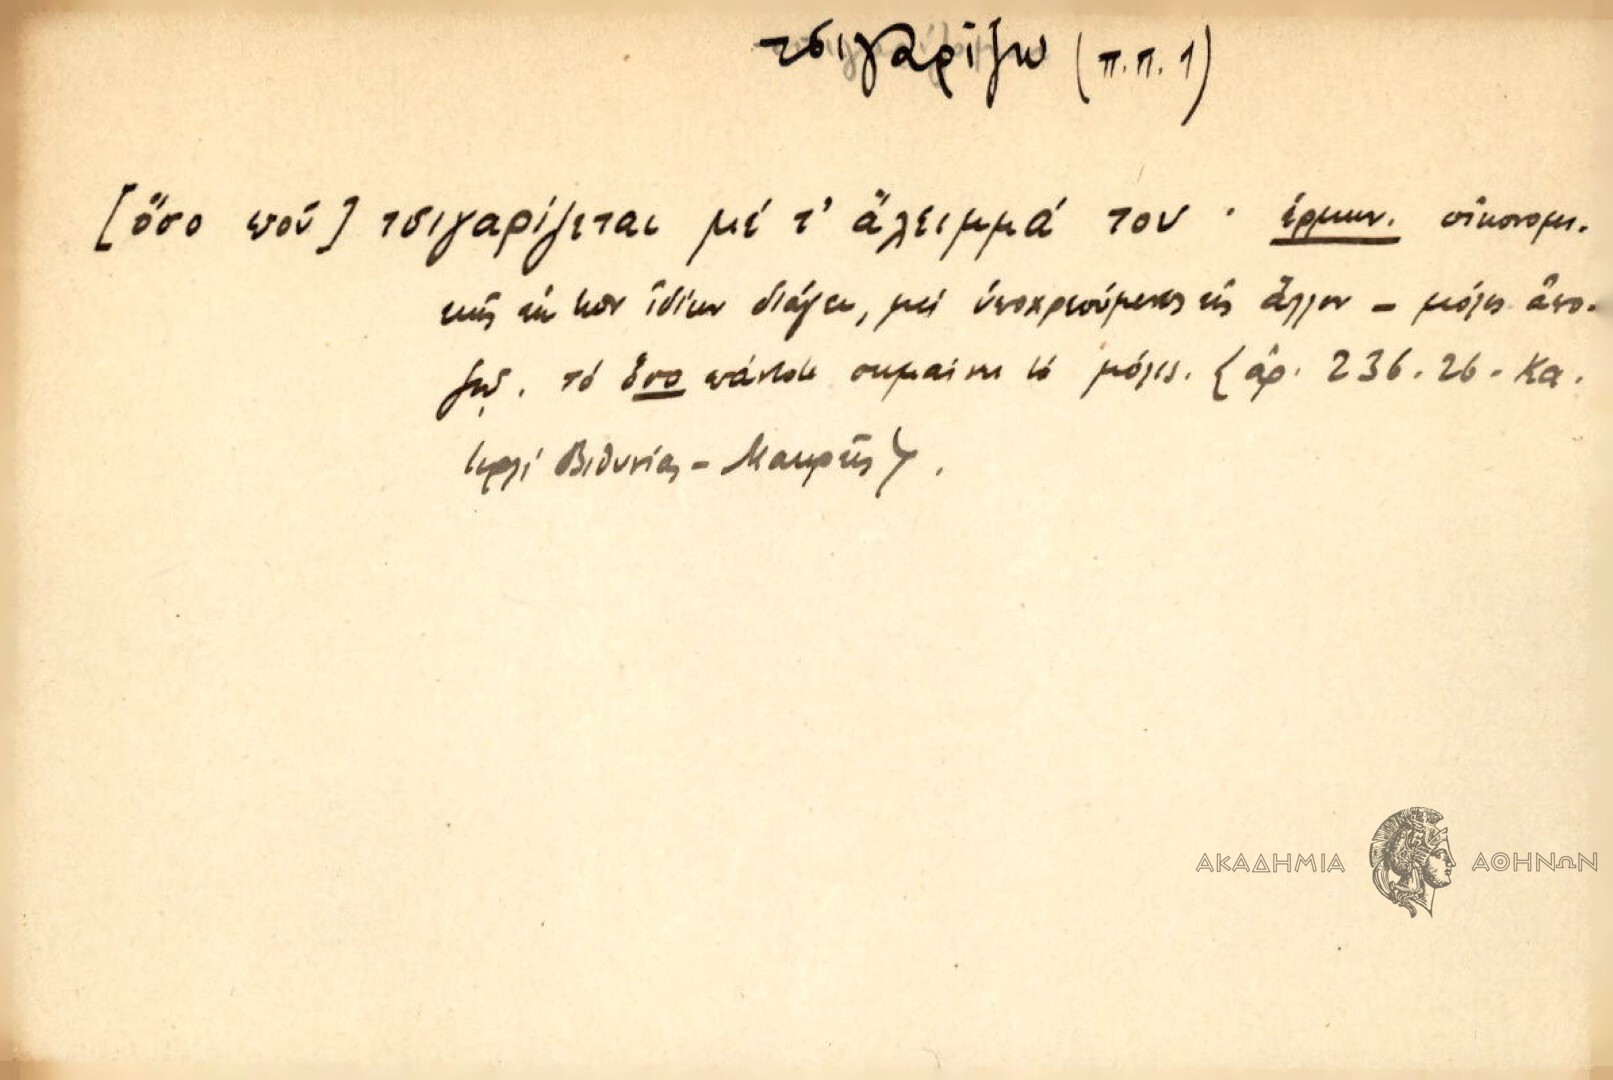 τσιγαρίζω (π.π. 1)
[ὅσο ποῦ] τσιγαρίζεται μέ τ' ἄλειμμά του · ἑρμην. οἰκονομι-
κῶς ἐκ τῶν ἰδίων διάγει, μή ὑποχρεούμενος εἰς ἄλλον - μόλις ἀπο-
ζῇ. τό ὅσο πάντοτε σημαίνει τό μόλις. {ἀρ. 236. 26. Κα-
τιρλί Βιθυνίας - Μακρῆς}.
ΑΚΑΔΗΜΙΑ ΑΘΗΝΩΝ